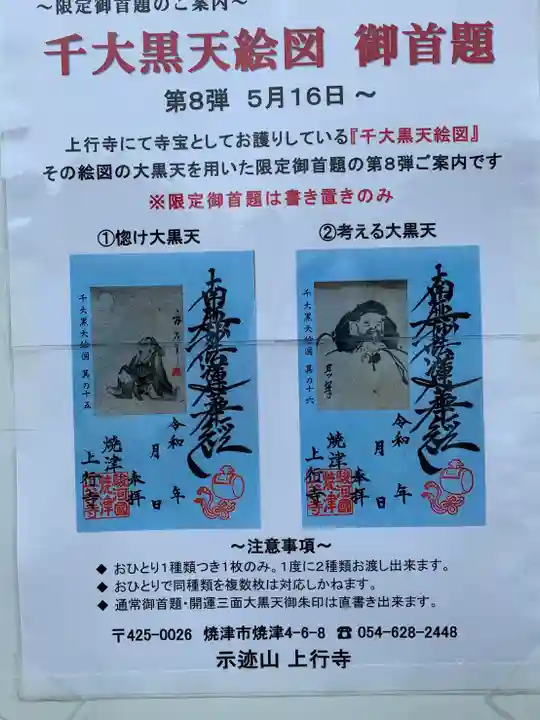 ～限定御首題のご案内～
千大黒天絵図 御首題
第8弾 5月16日 ～
上行寺にて寺宝としてお護りしている『千大黒天絵図』
その絵図の大黒天を用いた限定御首題の第8弾ご案内です
※限定御首題は書き置きのみ
①惚け大黒天
千大黒天絵図 其の十五
南無妙法蓮華経
令和 年
月 日
奉拝
焼津
上行寺
駿河國
焼津
②考える大黒天
千大黒天絵図 其の十六
南無妙法蓮華経
令和 年
月 日
奉拝
焼津
上行寺
駿河國
焼津
～注意事項～
◆ おひとり1種類つき1枚のみ。1度に2種類お渡し出来ます。
◆ おひとりで同種類を複数枚は対応しかねます。
◆ 通常御首題・開運三面大黒天御朱印は直書き出来ます。
〒425-0026 焼津市焼津4-6-8 ☎ 054-628-2448
示迹山 上行寺